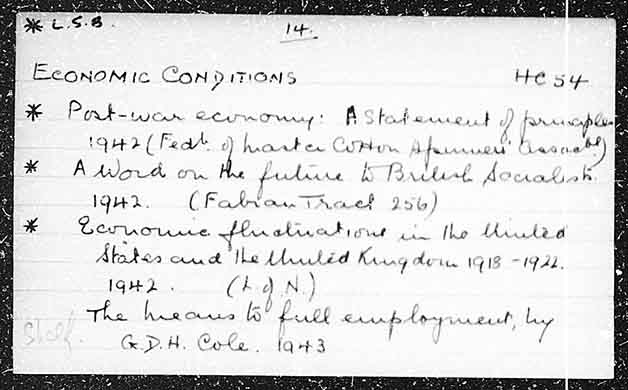 * L.S.B.
14.
ECONOMIC CONDITIONS HC 54
* Post-war economy: A statement of principles
1942 (Fedn. of Master Cotton Spinners' Assocns.)
* A Word on the future to British Socialists.
1942. (Fabian Tract 256)
* Economic fluctuations in the United
States and the United Kingdom 1918-1922.
1942. (L. of N.)
The means to full employment, by
Shelf. G.D.H. Cole. 1943